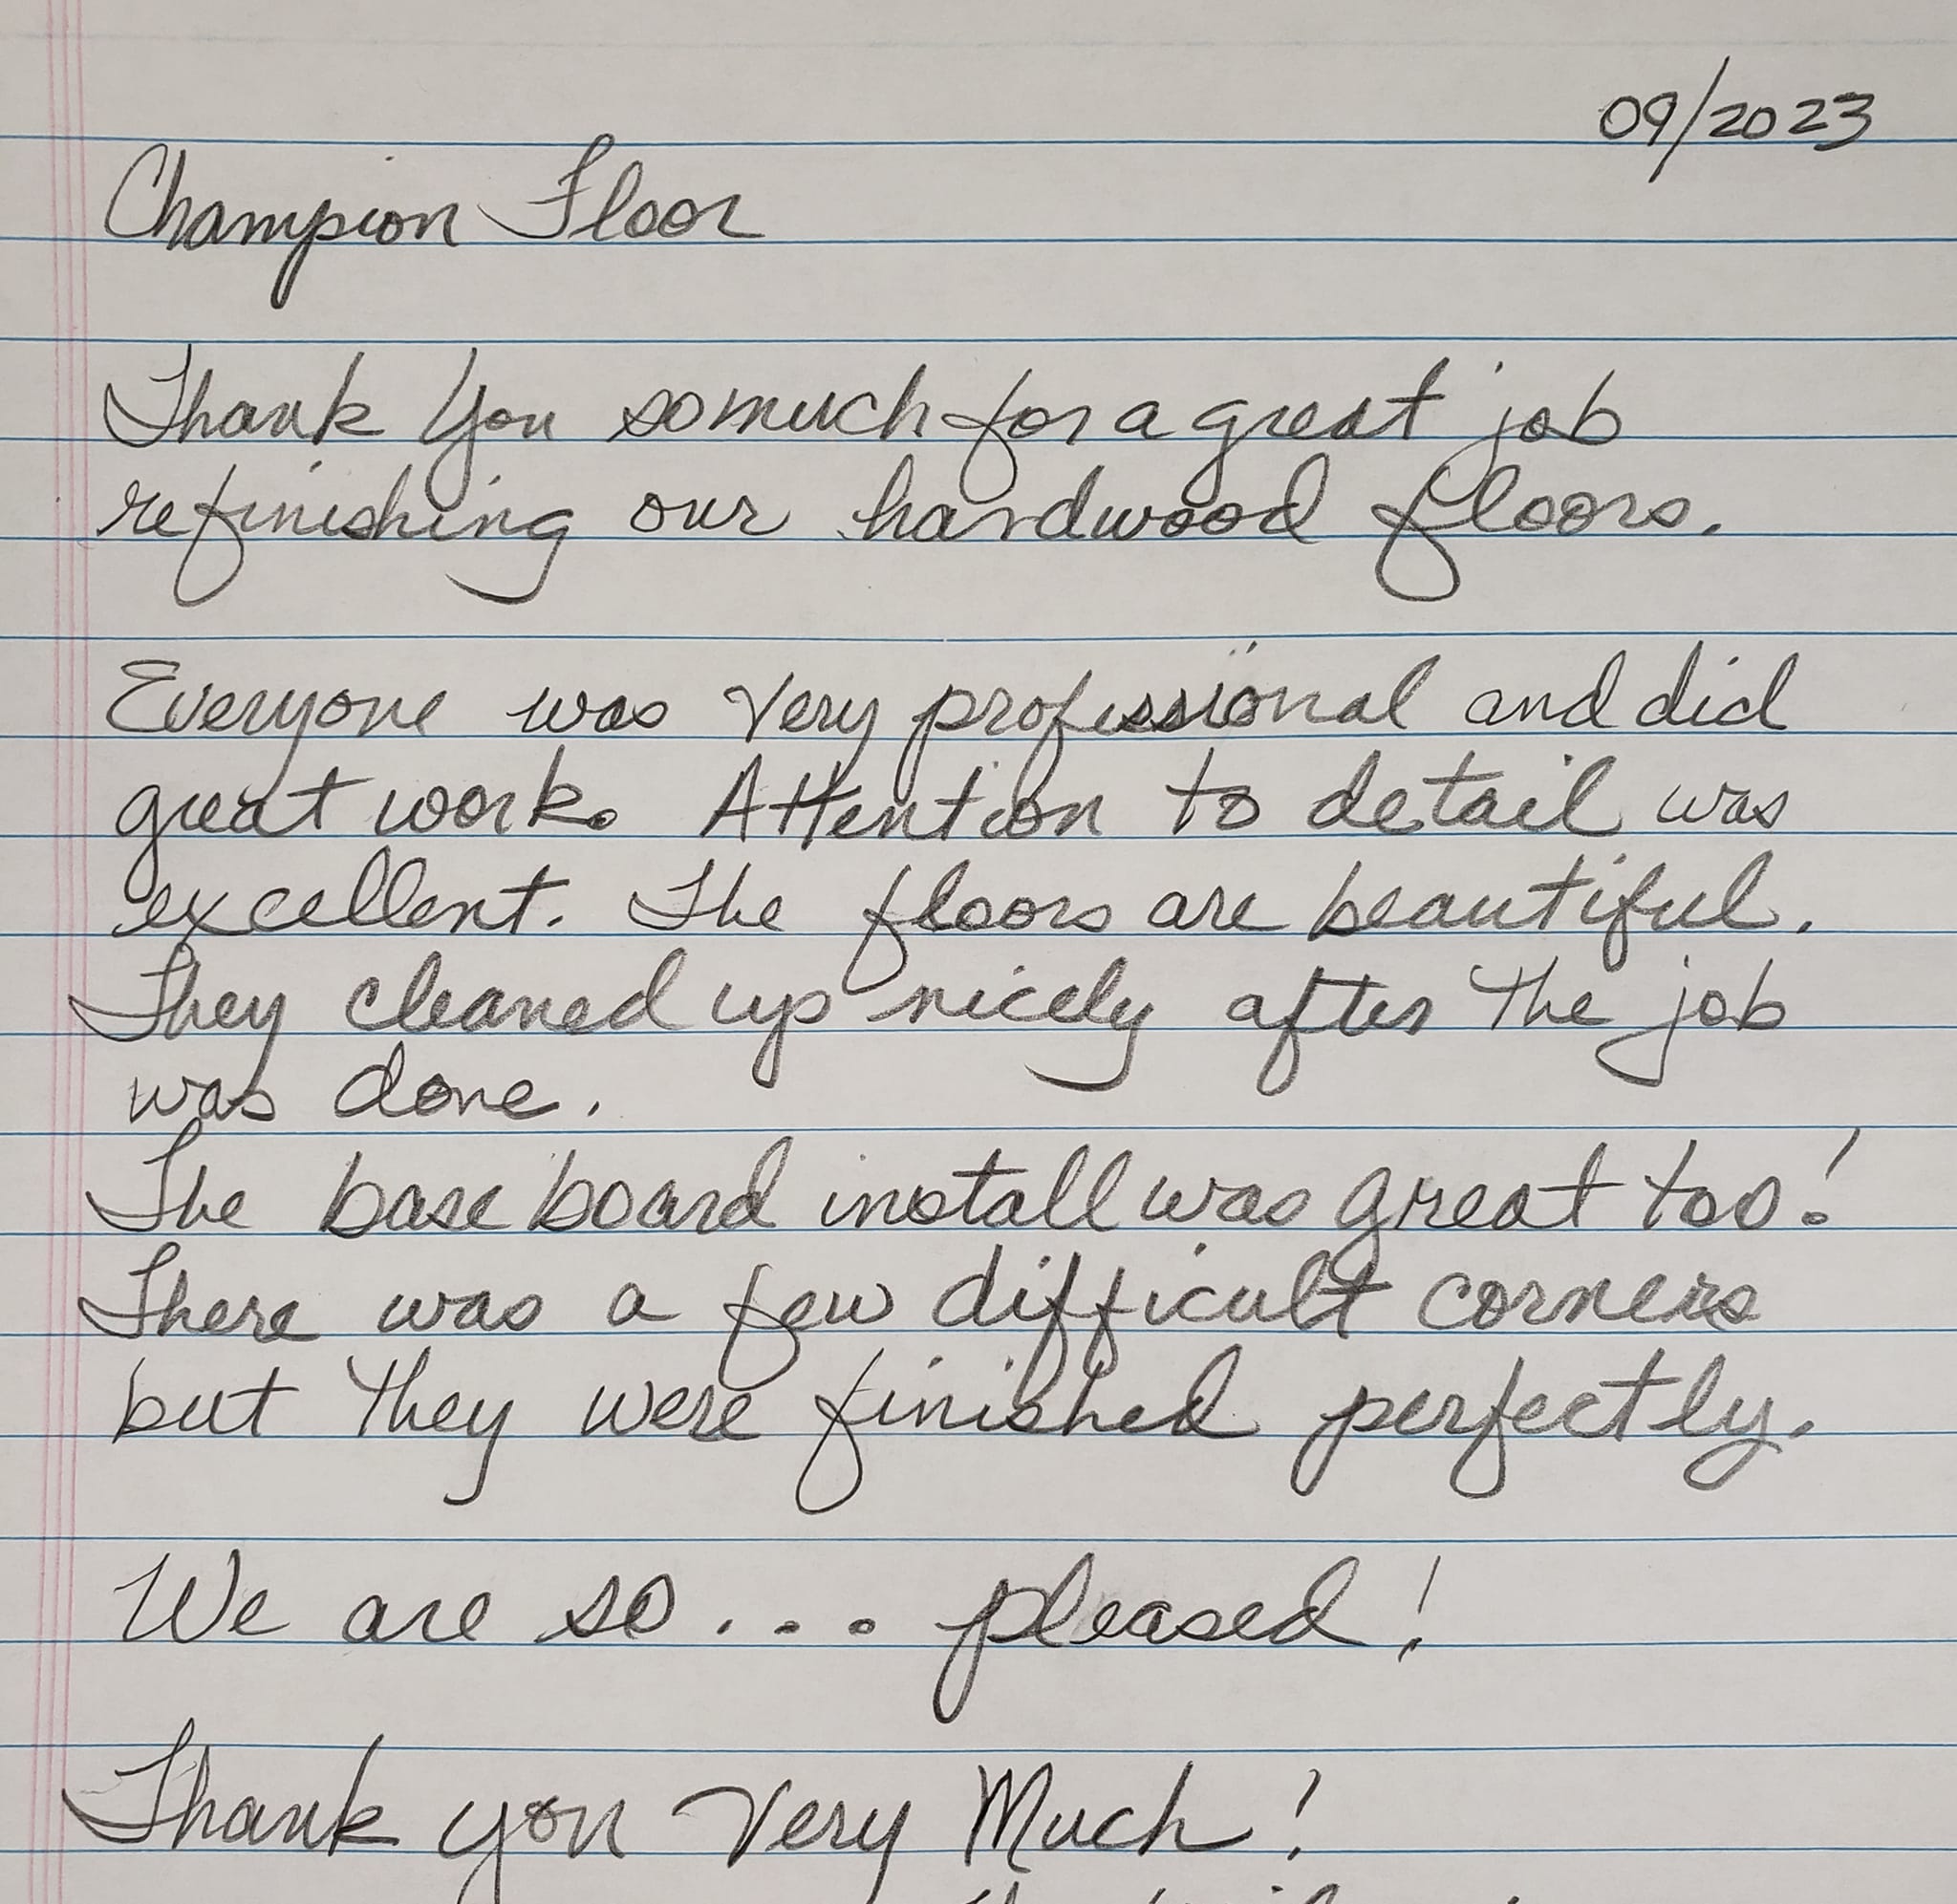 09/2023
Champion Floor
Thank You so much for a great job
refinishing our hardwood floors.
Everyone was very professional and did
great work. Attention to detail was
excellent. The floors are beautiful.
They cleaned up nicely after the job
was done.
The base board install was great too!
There was a few difficult corners
but they were finished perfectly.
We are so... pleased!
Thank you Very Much!